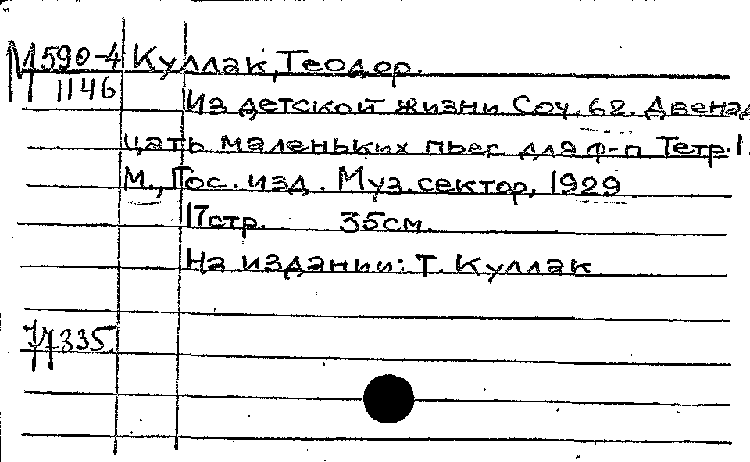 М 590-4 Куллак, Теодор.
1146
Из детской жизни Соч. 62. Двенад
цать маленьких пьес для ф-п Тетр. 1.
М., Гос. изд. Муз. сектор, 1929
17 стр. 35 см.
На издании: Т. Куллак
335